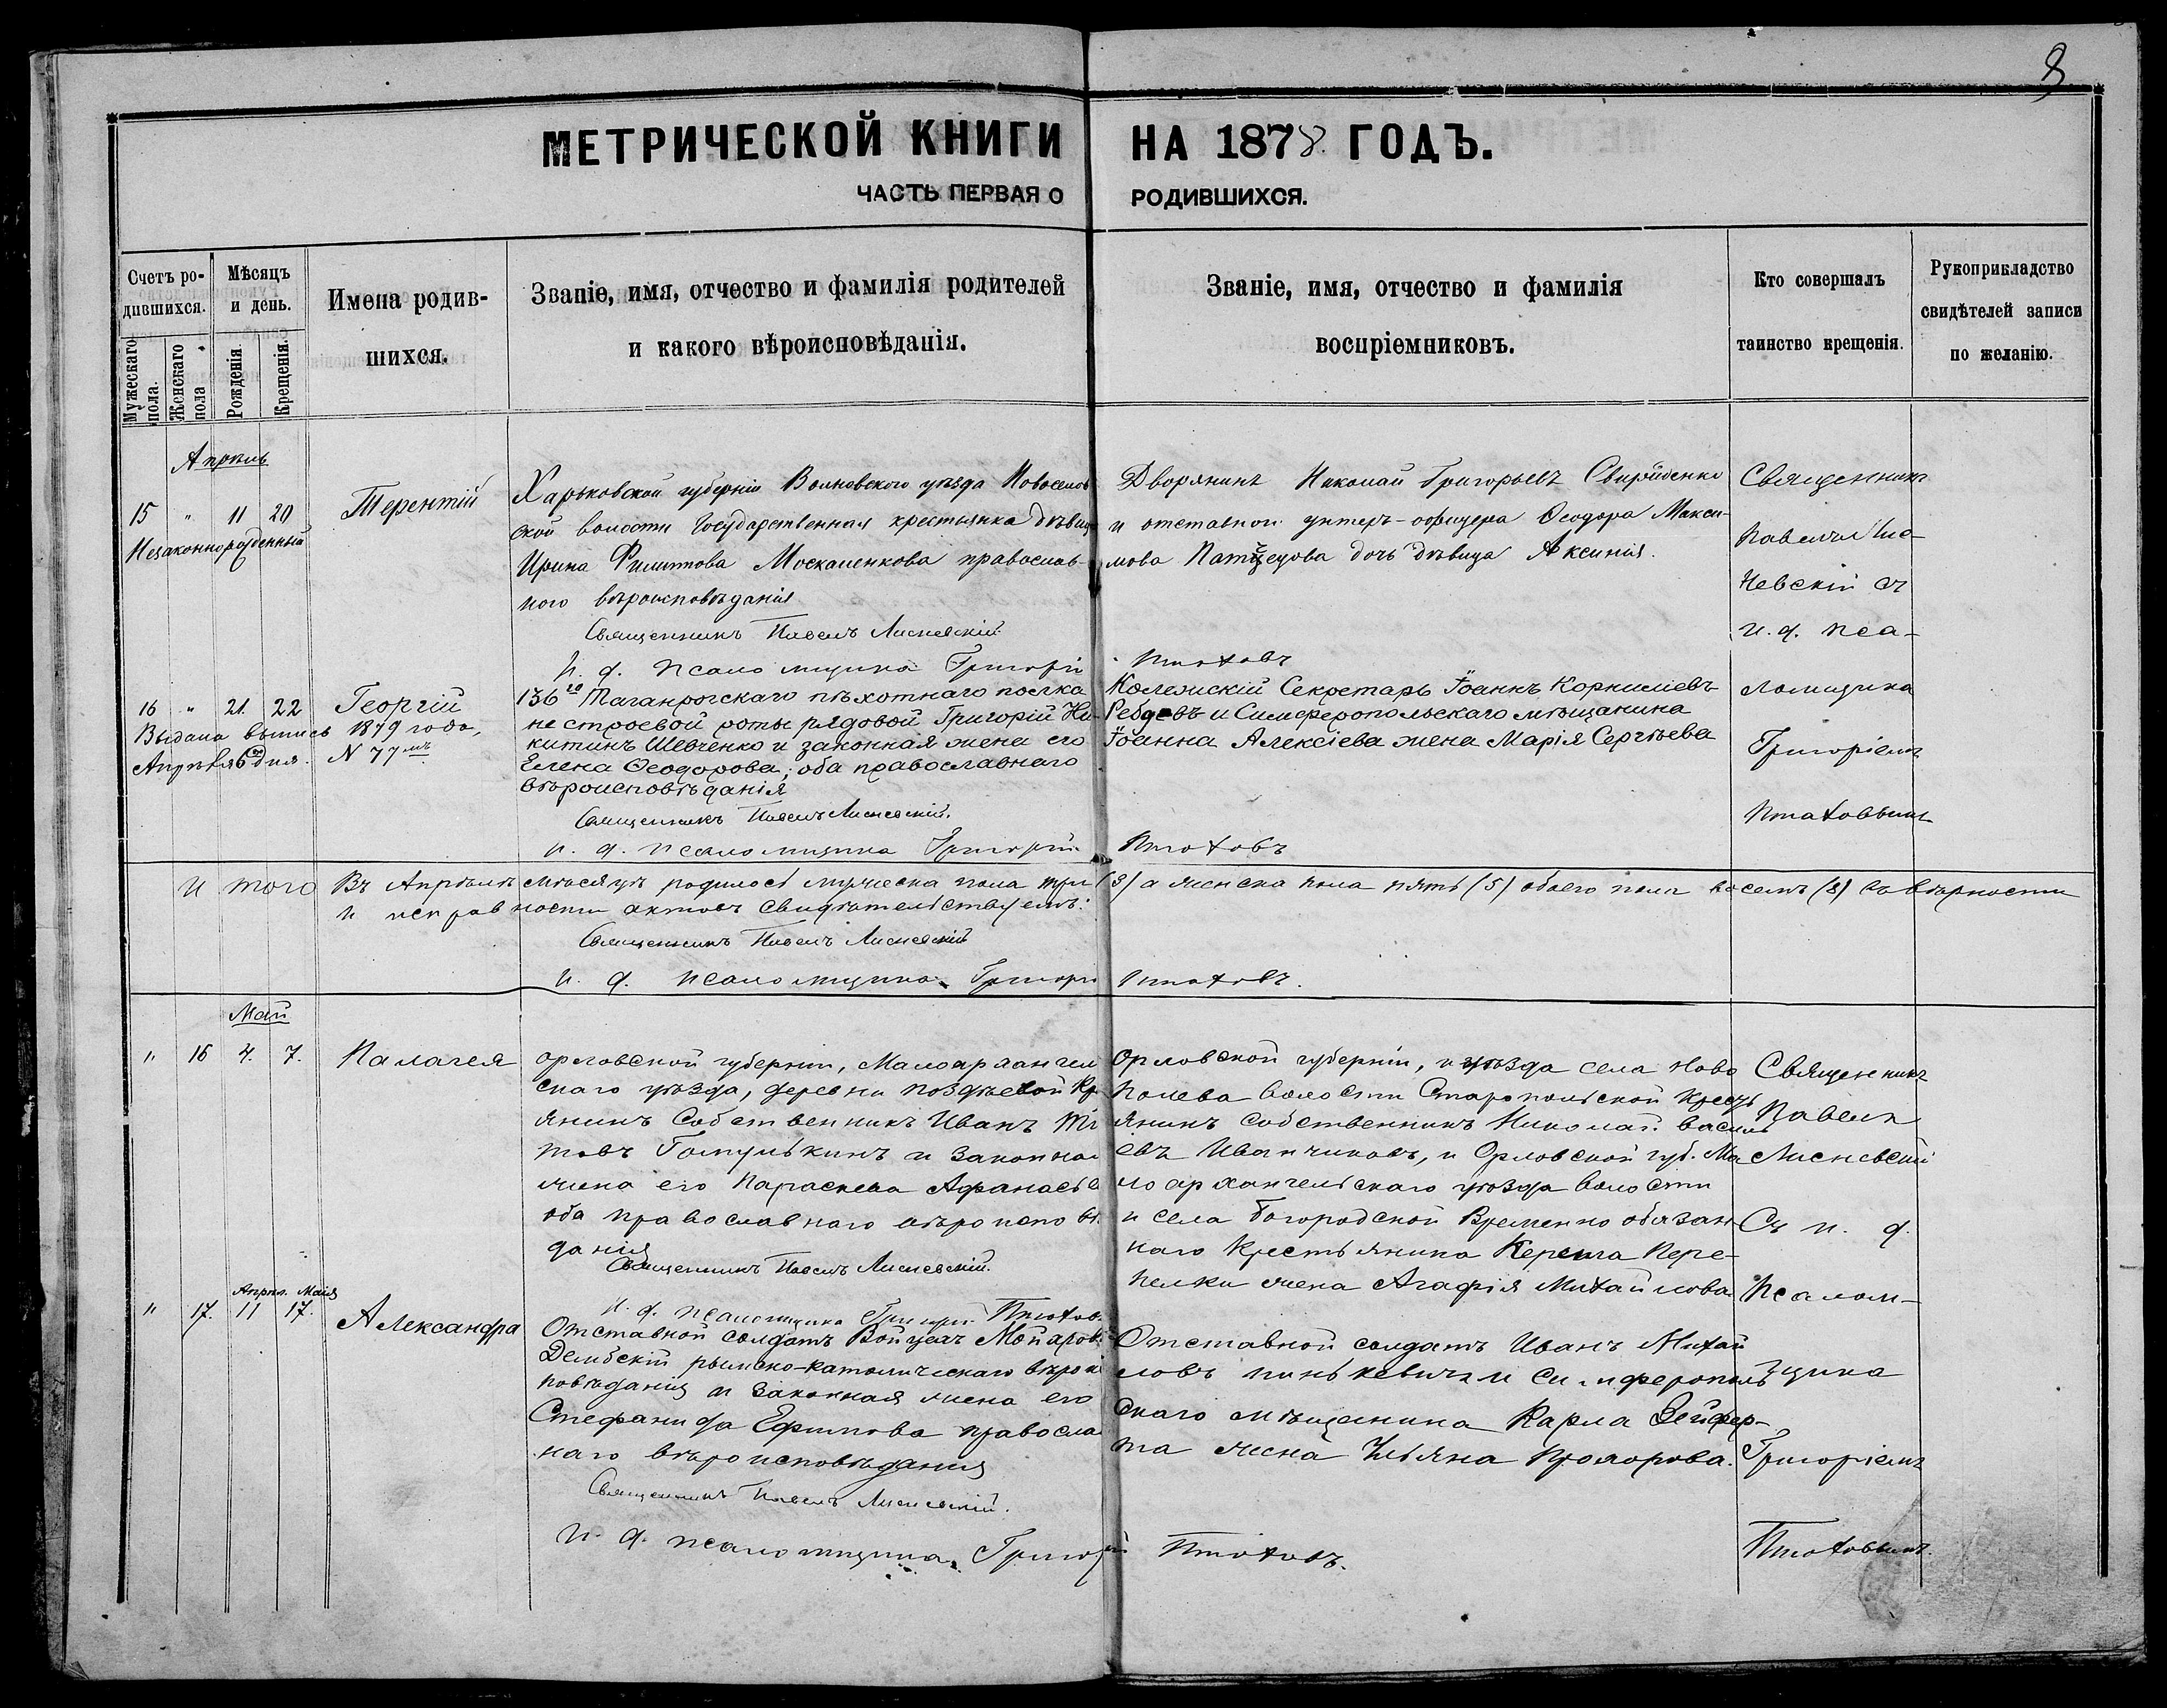 9
МЕТРИЧЕСКОЙ КНИГИ НА 1878 ГОДЪ.
ЧАСТЬ ПЕРВАЯ О РОДИВШИХСЯ.
Счетъ родившихся.
Мужескаго пола.
Женскаго пола
Мѣсяцъ и день.
Рожденія.
Крещенія.
Имена родившихся.
Званіе, имя, отчество и фамилія родителей
и какого вѣроисповѣданія.
Званіе, имя, отчество и фамилія
воспріемниковъ.
Кто совершалъ
таинство крещенія.
Рукоприкладство
свидѣтелей записи
по желанію.
Апрѣль
15 " 11 20
Незаконнорожденный
Терентій
Харьковской губерніи Волковского уѣзда Новоселов
ской волости Государственная крестьянка дѣвица
Ирина Филиппова Москаленкова православ-
ного вѣроисповѣданія
Священникъ Павелъ Лисневскій
И. д. псаломщика Григорій Птоховъ
Дворянинъ Николай Григорьевъ Свириденко
и отставной унтеръ-офицера Ѳеодора Макси-
мова дочь дѣвица Аксинія.
Священникъ
Павелъ Лис-
невскій съ
и. д. пса-
ломщика
Григоріемъ
Птоховымъ
16 " 21. 22
Георгій
Выдана выпись 1879 года,
Апрѣля 6 дня. N 77
136го Таганрогскаго пѣхотнаго полка
не строевой роты рядовой Григорій Ни-
китинъ Шевченко и законная жена его
Елена Ѳеодорова; оба православнаго
вѣроисповѣданія
Священникъ Павелъ Лисневскій.
и. д. псаломщика Григорій Птоховъ
Колежскій Секретарь Іоаннъ Корниліевъ
и Симферопольскаго мѣщанина
Іоанна Алексіева жена Марія Сергѣева
И того Въ Апрѣлѣ мѣсяцѣ родилось мужеска пола три (3) а женска пола пять (5) обоего пола восемь (8) въ вѣрности
и исправности актовъ свидѣтельствуемъ:
Священникъ Павелъ Лисневскій
И. д. псаломщика Григорій Птоховъ.
Май
" 16 4. 7.
Палагея
Орловской губерніи, Малоархангель
скаго уѣзда, деревни Кр
янинъ Собственникъ Иванъ Ти
товъ Гомулькинъ и законная
жена его Параскева Афанасьева
оба православнаго вѣроисповѣ
данія
Священникъ Павелъ Лисневскій.
И. д. псаломщика Григорій Птоховъ
Орловской губерніи, и уѣзда села Ново
полева волости Старопольской Кресть
янинъ собственникъ Николай Василь
евъ Иванчиковъ, и Орловской губ. Ма
лоархангельскаго уѣзда волости
и села Богородской Временно обязан
наго Крестьянина Пере-
пелки жена Агафія Михайлова
Священникъ
Павелъ
Лисневскій
Съ и. д.
Псалом-
щика
Григоріемъ
Птоховымъ.
Апрѣл. Маія
" 17. 11 17.
Александра
Отставной солдатъ Войцехъ
Дембскій римско-католическаго вѣроис
повѣданія и законная жена его
Стефанида Ефимова православ
наго вѣроисповѣданія
Священникъ Павелъ Лисневскій.
И. д. псаломщика Григорій Птоховъ.
Отставной солдатъ Иванъ Михай
ловъ и Симферополь
скаго мѣщанина Карла Зейфер-
та жена Ульяна Прохорова.